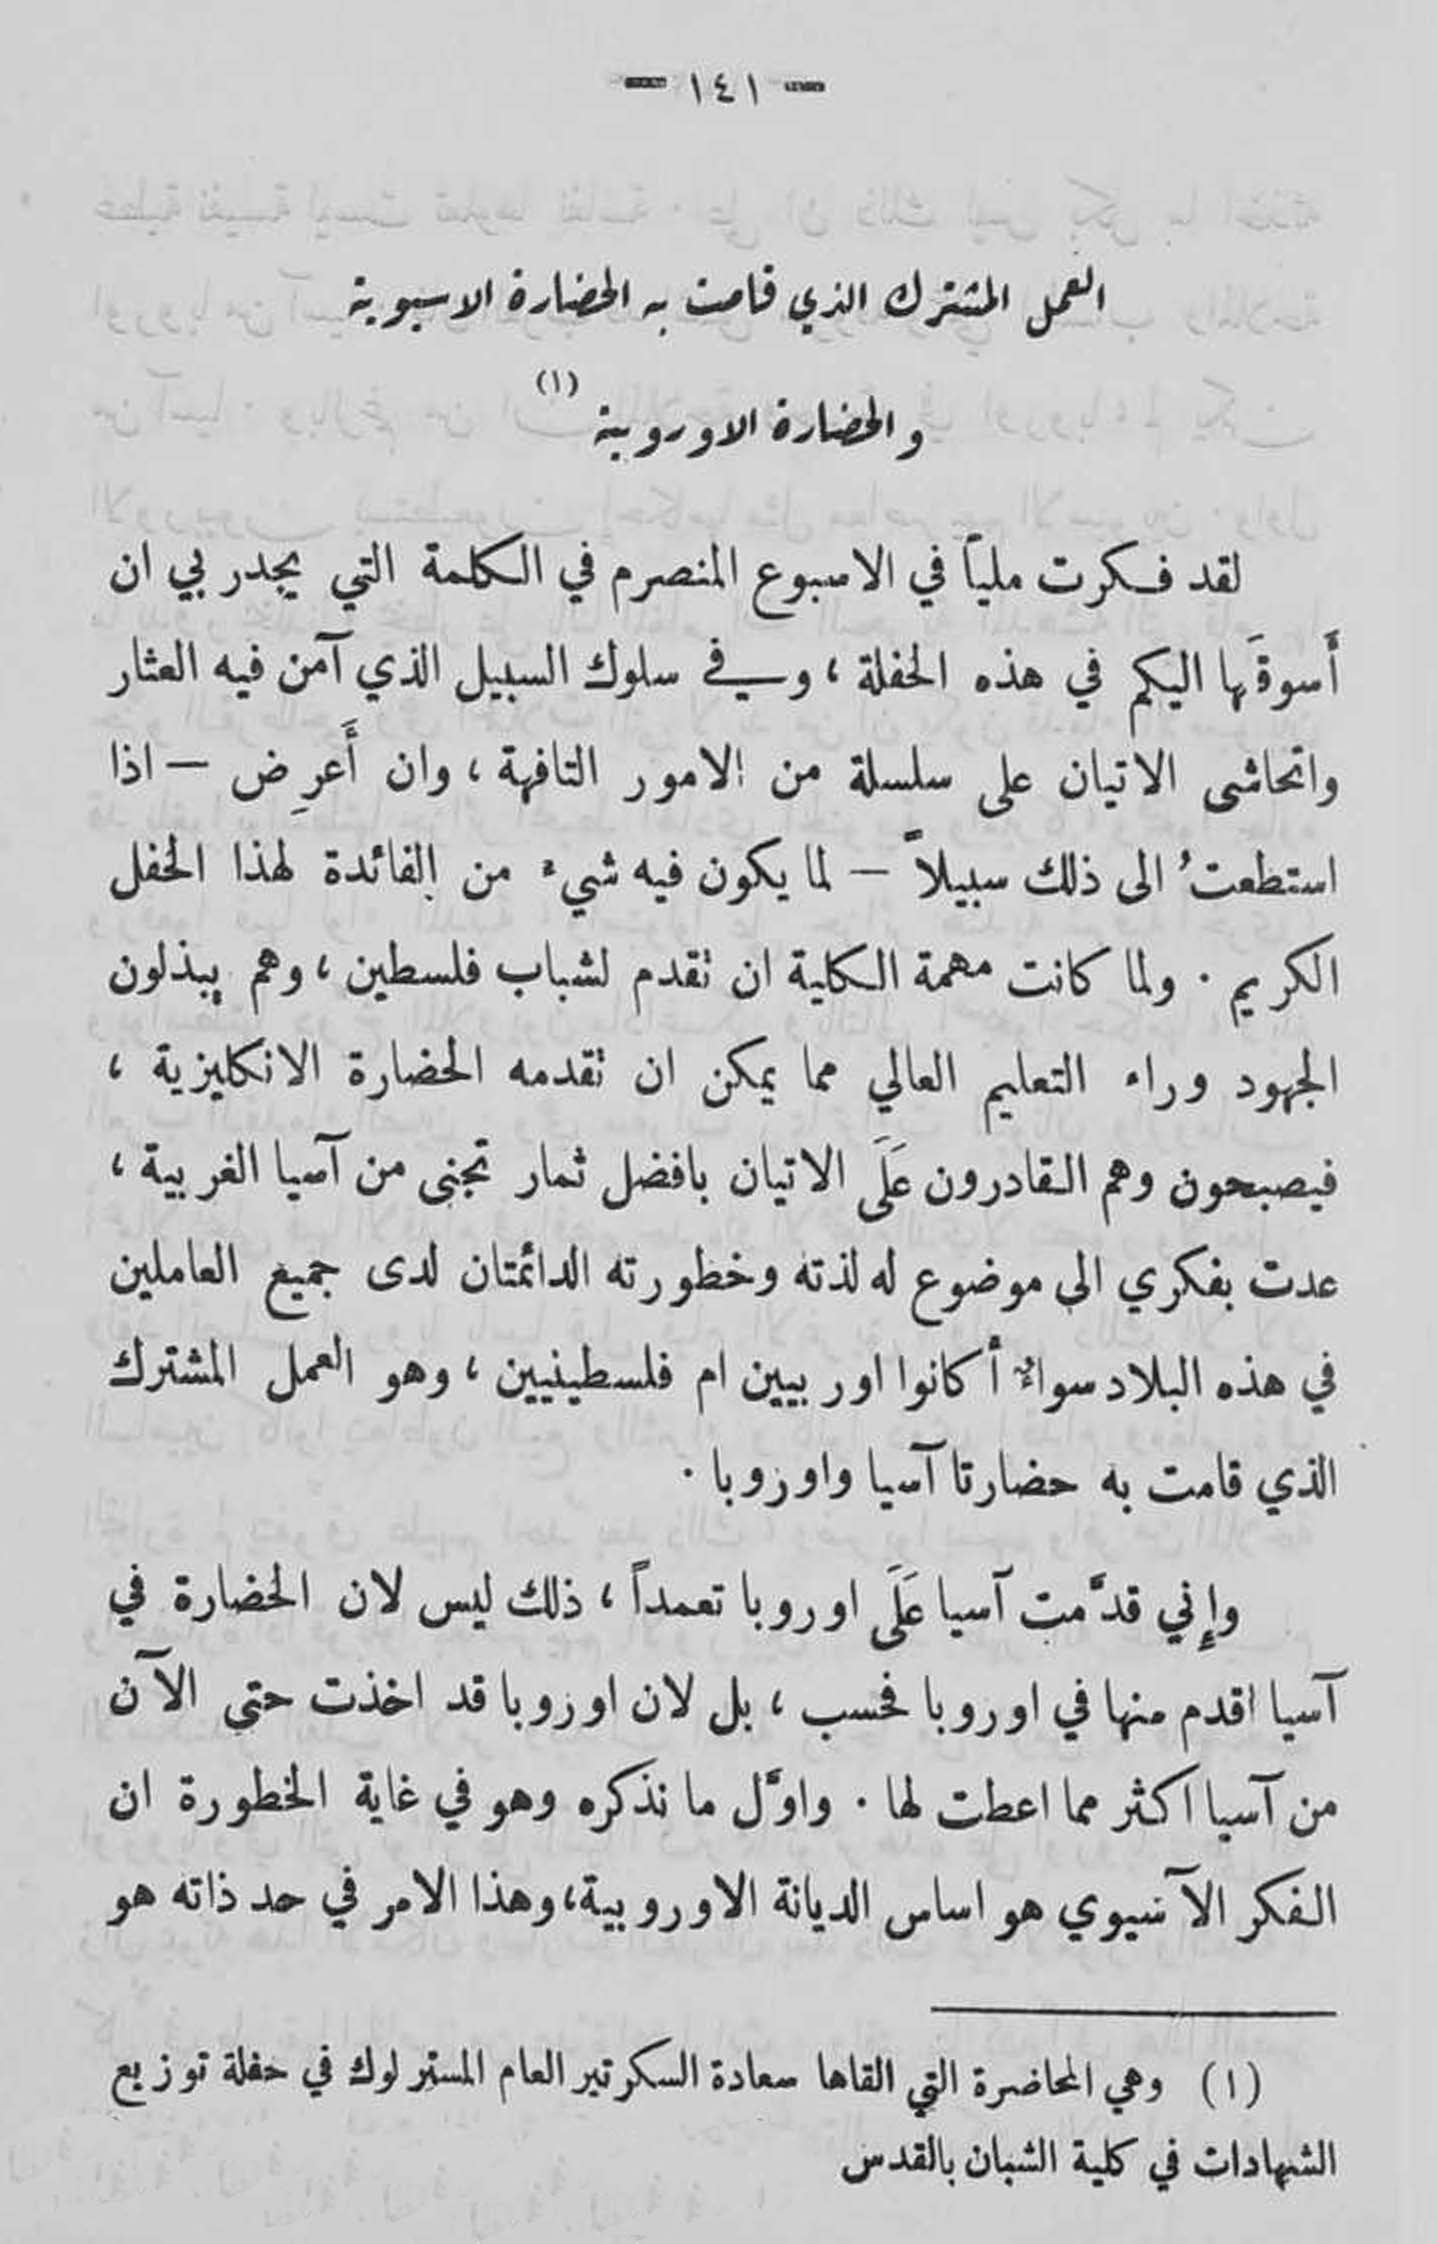 — ١٤١ —
العمل المشترك الذي قامت به الحضارة الاسيوية
والحضارة الاوروبية (١)
لقد فكرت ملياً في الاسبوع المنصرم في الكلمة التي يجدر بي ان
أَسوقَها اليكم في هذه الحفلة ، وفي سلوك السبيل الذي آمن فيه العثار
واتحاشى الاتيان على سلسلة من الامور التافهة ، وان أَعرِض — اذا
استطعتُ الى ذلك سبيلاً — لما يكون فيه شيء من الفائدة لهذا الحفل
الكريم . ولما كانت مهمة الكلية ان تقدم لشباب فلسطين ، وهم يبذلون
الجهود وراء التعليم العالي مما يمكن ان تقدمه الحضارة الانكليزية ،
فيصبحون وهم القادرون عَلَى الاتيان بافضل ثمار تجنى من آسيا الغربية ،
عدت بفكري الى موضوع له لذته وخطورته الدائمتان لدى جميع العاملين
في هذه البلاد سواءٌ أكانوا اوربيين ام فلسطينيين ، وهو العمل المشترك
الذي قامت به حضارتا آسيا واوروبا .
وإِني قدَّمت آسيا عَلَى اوروبا تعمداً ، ذلك ليس لان الحضارة في
آسيا اقدم منها في اوروبا فحسب ، بل لان اوروبا قد اخذت حتى الآن
من آسيا اكثر مما اعطت لها . واوَّل ما نذكره وهو في غاية الخطورة ان
الفكر الآسيوي هو اساس الديانة الاوروبية، وهذا الامر في حد ذاته هو
(١) وهي المحاضرة التي القاها سعادة السكرتير العام المستر لوك في حفلة توزيع
الشهادات في كلية الشبان بالقدس